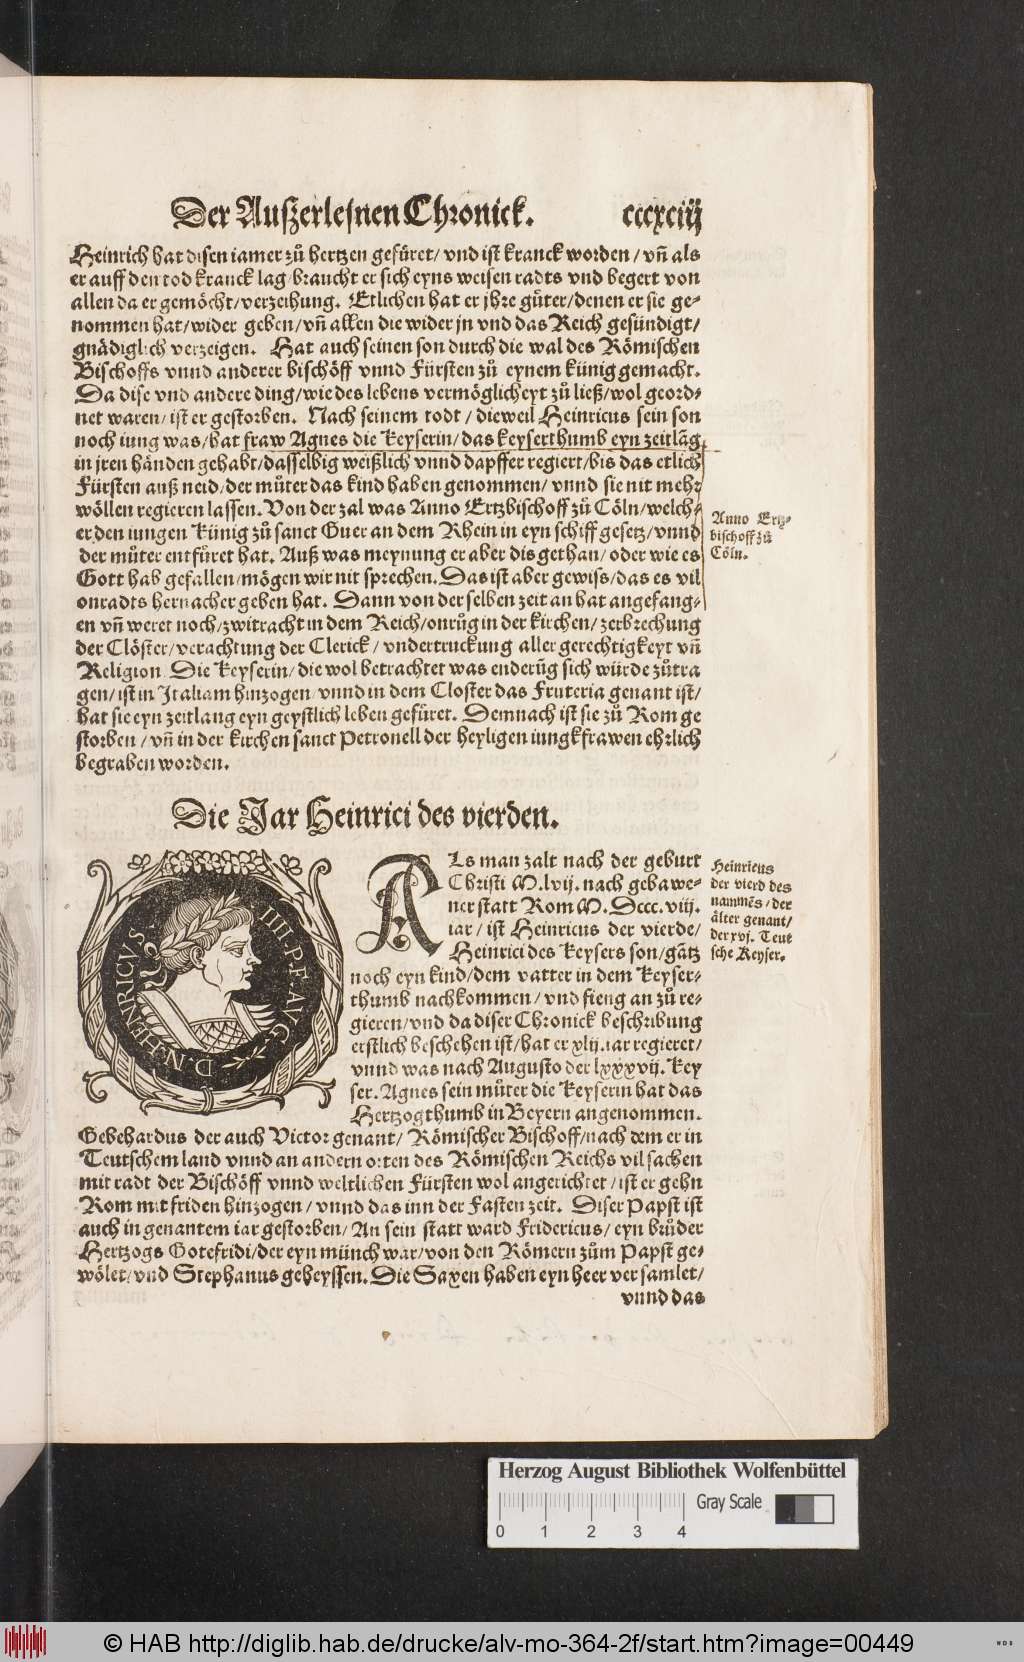 Der Außerlesnen Chronick. cccxciij
Heinrich hat disen iamer zů hertzen gefüret/ vnd ist kranck worden/ vñ als
er auff den tod kranck lag/ braucht er sich eyns weisen radts vnd begert von
allen da er gemöcht/ verzeihung. Etlichen hat er jhre gůter/ denen er sie ge-
nommen hat/ wider geben/ vñ allen die wider jn vnd das Reich gesündigt/
gnädiglich verzeigen. Hat auch seinen son durch die wal des Römischen
Bischoffs vnnd anderer bischöff vnnd Fürsten zů eynem künig gemacht.
Da dise vnd andere ding/ wie des lebens vermöglicheyt zů ließ/ wol geord-
net waren/ ist er gestorben. Nach seinem todt/ dieweil Heinricus sein son
noch iung was/ hat fraw Agnes die keyserin/ das keyserthumb eyn zeitlãg
in jren händen gehabt/ dasselbig weißlich vnnd dapffer regiert/ bis das etlich
Fürsten auß neid/ der můter das kind haben genommen/ vnnd sie nit mehr
wöllen regieren lassen. Von der zal was Anno Ertzbischoff zů Cöln/ welch-
er den iungen künig zů sanct Guer an dem Rhein in eyn schiff gesetz/ vnnd
der můter entfüret hat. Auß was meynung er aber dis gethan/ oder wie es
Gott hab gefallen/ mögen wir nit sprechen. Das ist aber gewiss/ das es vil
onradts hernacher geben hat. Dann von der selben zeit an hat angefang-
en vñ weret noch/ zwitracht in dem Reich/ onrůg in der kirchen/ zerbrechung
der Clöster/ verachtung der Clerick/ vndertruckung aller gerechtigkeyt vñ
Religion. Die keyserin/ die wol betrachtet was enderũg sich würde zůtra
gen/ ist in Italiam hinzogen/ vnnd in dem Closter das Fruteria genant ist/
hat sie eyn zeitlang eyn geystlich leben gefüret. Demnach ist sie zů Rom ge
storben/ vñ in der kirchen sanct Petronell der heyligen iungkfrawen ehrlich
begraben worden.
Anno Ertz-
bischoff zů
Cöln.
Die Jar Heinrici des vierden.
D. N. HENRICVS IIII. P. F. AVG.
ALs man zalt nach der geburt
Christi M.lvij. nach gebawe-
ner statt Rom M. Dccc. viij.
iar/ ist Heinricus der vierde/
Heinrici des keysers son/ gãtz
noch eyn kind/ dem vatter in dem keyser-
thumb nachkommen/ vnd fieng an zů re-
gieren/ vnd da diser Chronick beschribung
erstlich beschehen ist/ hat er xlij. iar regieret/
vnnd was nach Augusto der lxxxvij. key
ser. Agnes sein můter die keyserin hat das
Hertzogthumb in Beyern angenommen.
Gebehardus der auch Victor genant/ Römischer Bischoff/ nach dem er in
Teutschem land vnnd an andern orten des Römischen Reichs vil sachen
mit radt der Bischöff vnnd weltlichen Fürsten wol angerichtet/ ist er gehn
Rom mit friden hinzogen/ vnnd das inn der Fasten zeit. Diser Papst ist
auch in genantem iar gestorben/ An sein statt ward Fridericus/ eyn brůder
Hertzogs Gotefridi/ der eyn münch war/ von den Römern zům Papst ge-
wölet/ vnd Stephanus geheyssen. Die Saxen haben eyn heer versamlet/
vnnd das
Heinricus
der vierd des
nammẽs/ der
älter genant/
der xvj. Teut
sche Keyser.
Herzog August Bibliothek Wolfenbüttel
Gray Scale
0 1 2 3 4
© HAB http://diglib.hab.de/drucke/alv-mo-364-2f/start.htm?image=00449